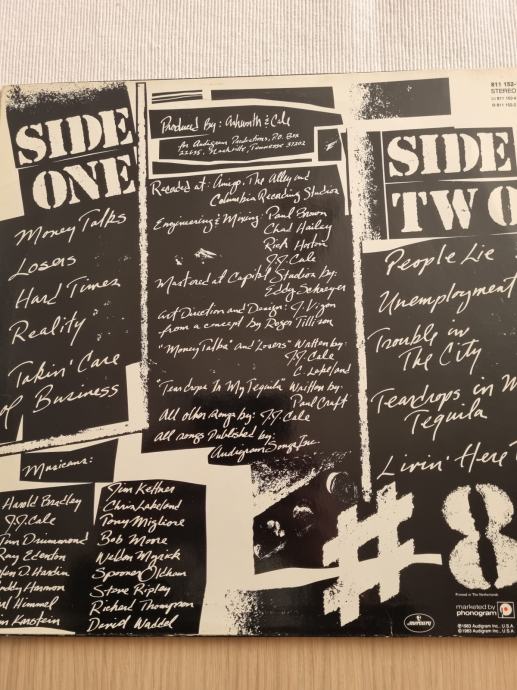 SIDE
ONE
Money Talks
Losers
Hard Times
Reality
Takin' Care
of Business
Musicians:
Harold Bradley
J.J. Cale
Tim Drummond
Ray Edenton
D. Hardin
Harmon
Himmel
Karstein
Jim Keltner
Chris Lakeland
Tony Migliore
Bob Moore
Weldon Myrick
Spooner Oldham
Steve Ripley
Richard Thompson
David Waddel
Produced By: Ashworth & Cale
for Audigram Productions, P.O. Box
22635, Nashville, Tennessee 37202
Recorded at: Amigo, The Alley and
Columbia Recording Studios
Engineering & Mixing: Paul Brown
Chad Hailey
Rick Horton
J.J. Cale
Mastered at Capitol Studios by:
Eddy Schreyer
Art Direction and Design: J. Vigon
from a concept by Roger Tillison
"Money Talks" and Losers Written by:
J.J. Cale
C. Lakeland
"Teardrops In My Tequila" Written by:
Paul Craft
All other songs by: J.J. Cale
All songs Published by:
Audigram Songs Inc.
811 152-
STEREO
SIDE
TWO
People Lie
Unemployment
Trouble in
The City
Teardrops in M
Tequila
Livin' Here T
#8
Printed in The Netherlands
mercury
marketed by
phonogram
℗ 1983 Audigram Inc., U.S.A.
© 1983 Audigram Inc., U.S.A.